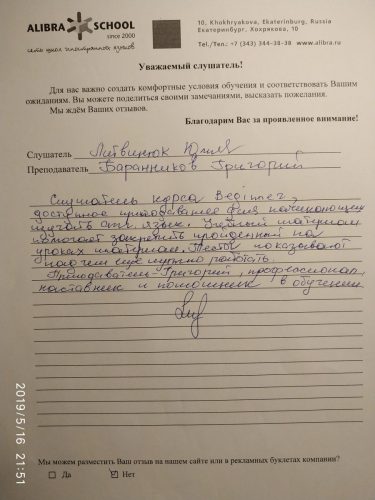 ALIBRA SCHOOL
since 2000
сеть школ иностранных языков
10, Khokhryakova, Ekaterinburg, Russia
Екатеринбург, Хохрякова, 10
Tel./Тел.: +7 (343) 344-38-38 www.alibra.ru
Уважаемый слушатель!
Для нас важно создать комфортные условия обучения и соответствовать Вашим
ожиданиям. Вы можете поделиться своими замечаниями, высказать пожелания.
Мы ждём Ваших отзывов.
Благодарим Вас за проявленное внимание!
Слушатель Литвинюк Юлия
Преподаватель Баранников Григорий
Слушатель курса Beginner,
доступное преподавание для начинающих
изучать анг. язык. Учебный материал
помогает закрепить пройденный на
уроках материал. Тесты показывают
над чем еще нужно работать.
Преподаватель Григорий, профессионал,
наставник и помощник в обучении
Мы можем разместить Ваш отзыв на нашем сайте или в рекламных буклетах компании?
Да Нет
2019/5/16 21:51